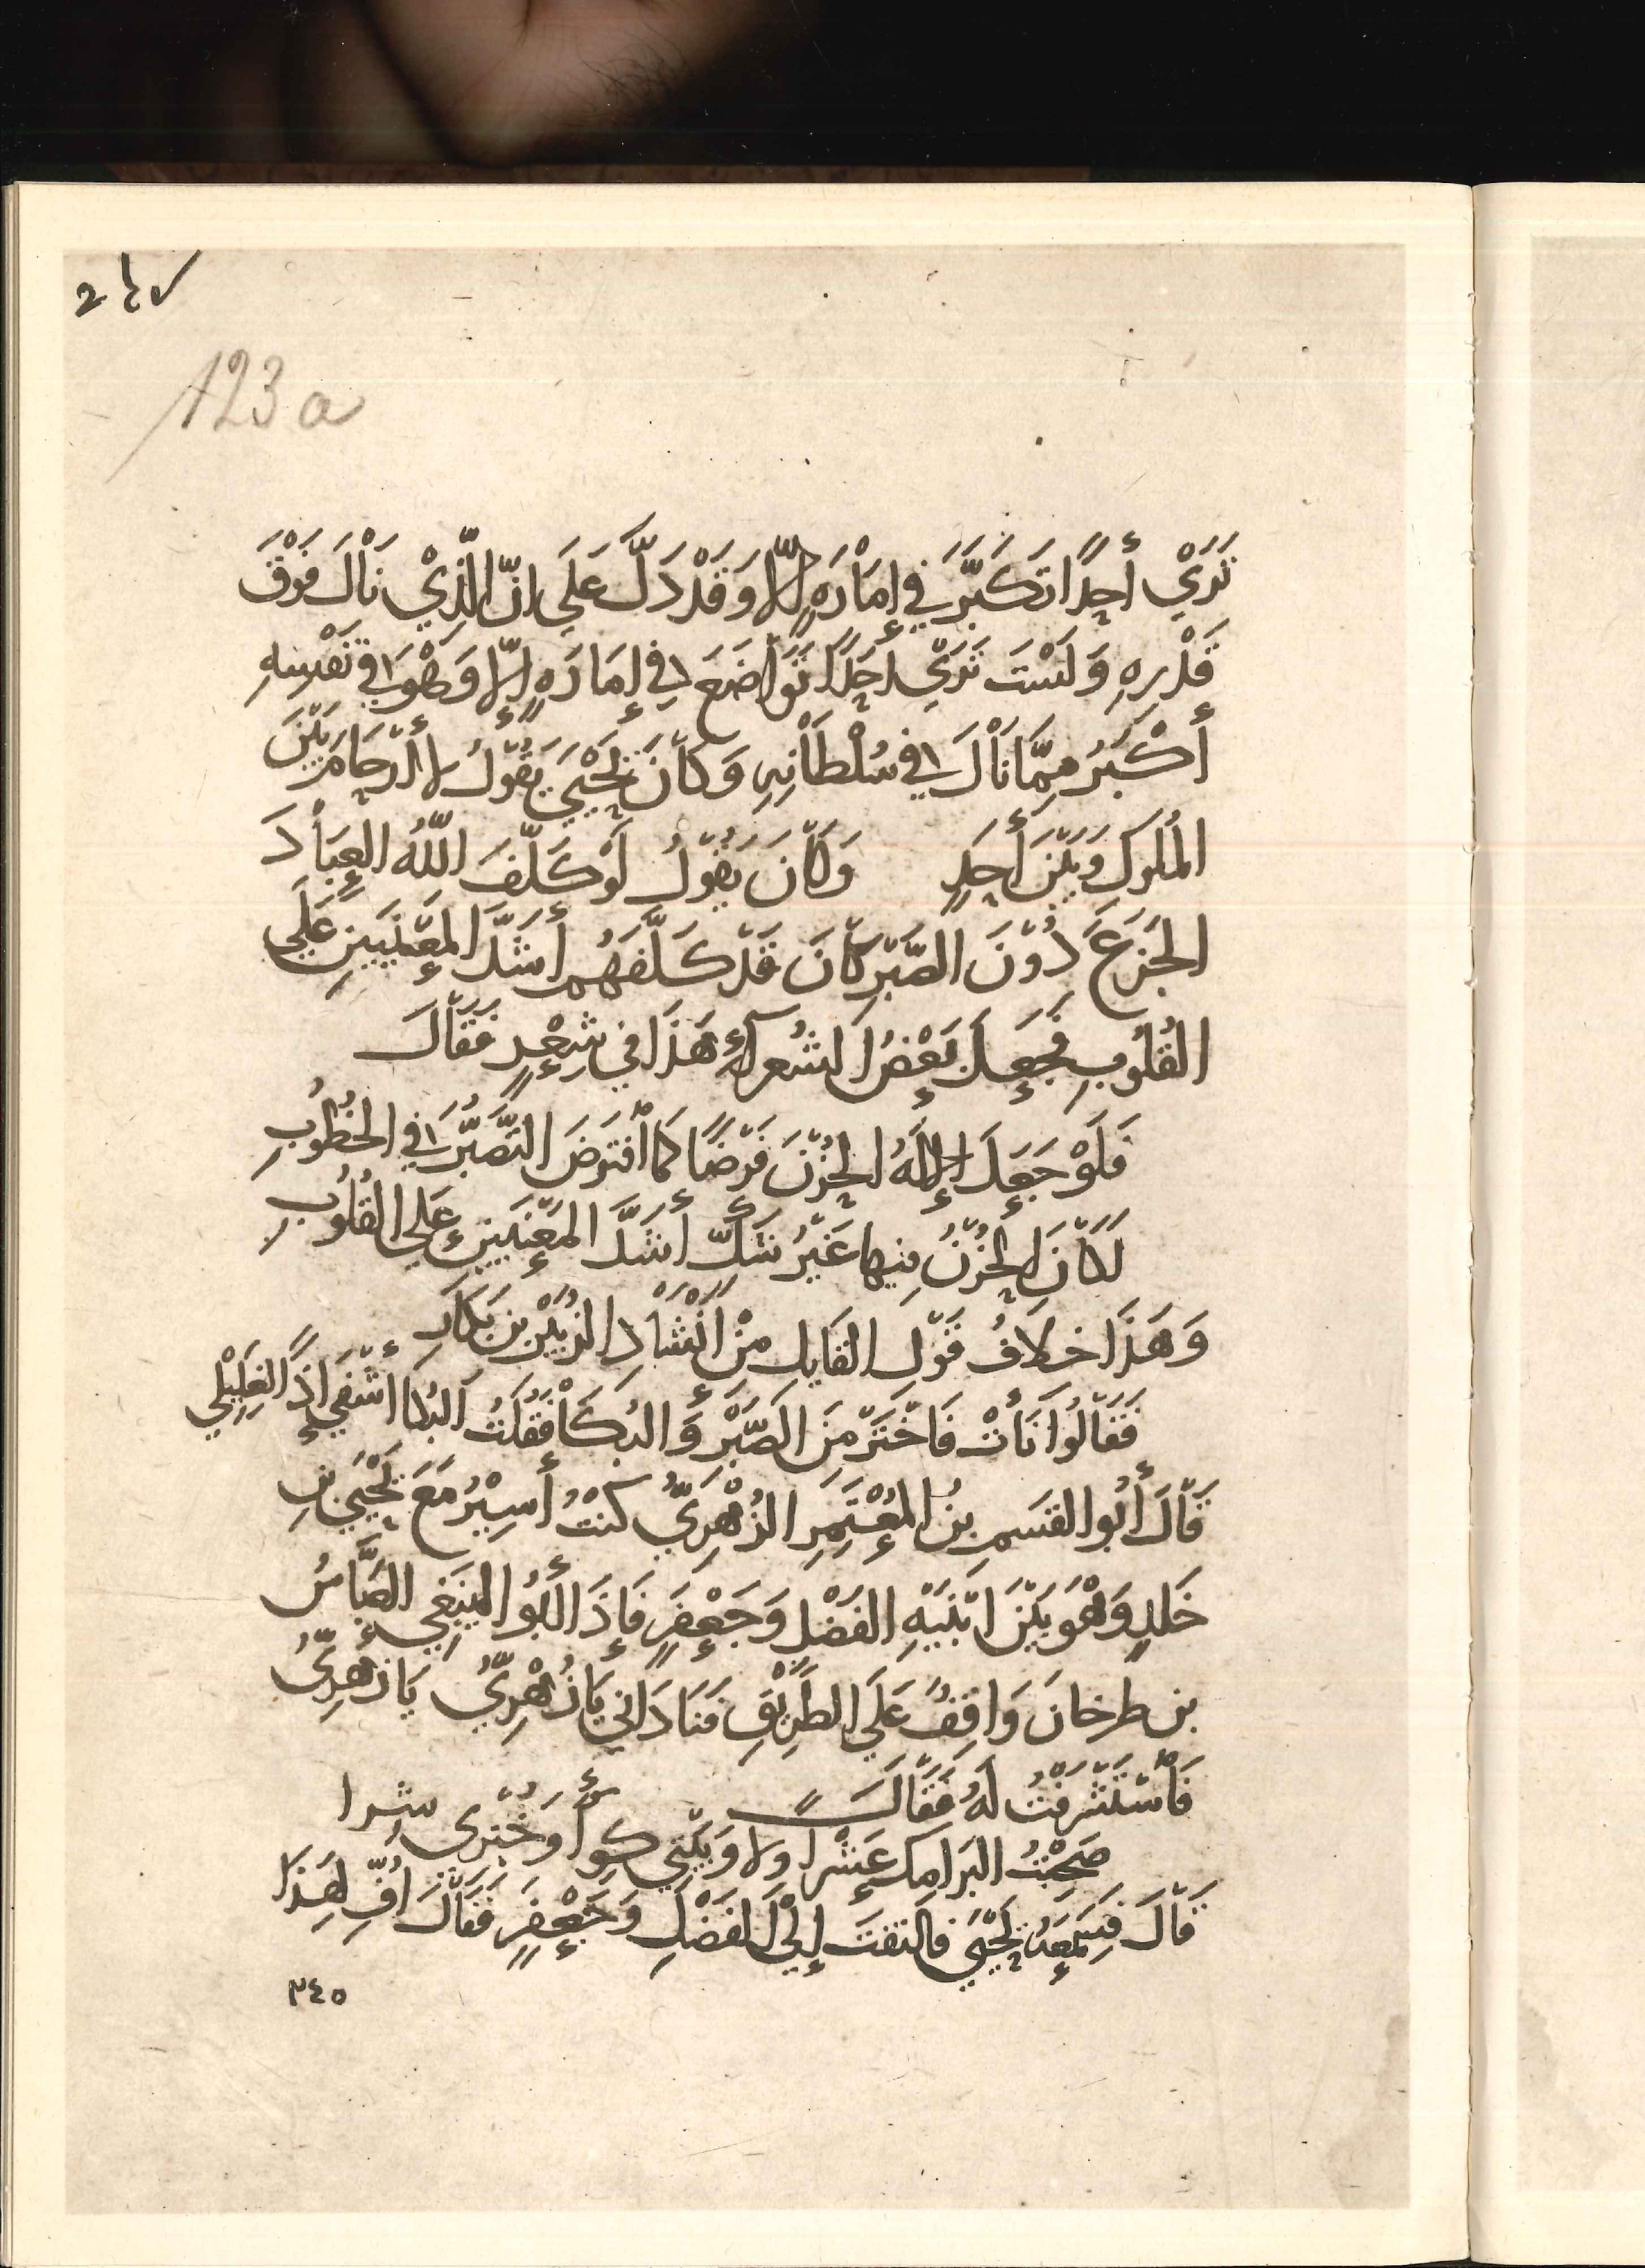 123a
تَرَيْ أحِدًا تكَبَّرَ في إمَاْرَهٍ إلّا وَقَدْ دَلَّ عَلَي انّ الَّذِيْ نَاْلَ فَوْقَ
قَدْرِهِ وَلَسْتَ تَرَيْ احَدًا تَوَاْضَعَ في إمَارَهٍ إلّا وَهْوَ في نَفْسِهِ
أكْبَرُ مِمَّا نَاْلَ في سُلْطَاْنِهِ وَكَاْنَ يَحْيَيَ يَقُوْلُ لا أرْحَامَ بَيْنَ
المُلوكِ وَبَيْنَ أحَدٍ وَكَاْنَ يَقُوْلُ لَوْ كَلَّفَ اللّهُ العِبَاْدَ
الجَزَعَ دُوْنَ الصَّبْرِ كَاْنَ قَدْ كَلَّفَهُم أشَدَّ المعْنَيَيْنِ عَلَي
القُلُوْبِ فَجَعَلَ بَعْضُ الشُعرآءِ هَذَا في شِعْرٍ فَقَاْلَ
فَلَوْ جَعَلَ الإلَهُ الحُزْنَ فَرْضًا كَمَا أفْتَرَضَ التَّصَبُّرَ في الخُطُوْبِ
لَكَاْنَ الحُزْنُ مِنها غَيْرَ شَكٍّ أشَدَّ المَعْنَيَيْنِ عَلي القُلُوْبِ
وَهَذَا خِلَافُ قَوْلِ القَايِلِ مِنْ انْشَاْدِ الزُبَيْرِ بن بَكَارِ
فَقَاْلُوا نَأتْ فَاخْتَرْ مِنَ الصَّبْرِ وَالبُكَاْ فَقُلْتُ البُكا أشْفَي إذًا لِغَلِيْلِي
قَاْلَ أبُو القَسمِ بنُ المُعْتَمِرِ الزُهْرِيُّ كنْتُ أسِيْرُ مَعَ يَحْيَي بنِ
خَلدٍ وَهْوَ بَيْنَ ابْنَيْهِ الفَضْلِ وَجَعْفَرٍ فَإذَا أبُو اليَنبَغِي العَبَّاسُ
بن طرخانَ وَاقِفٌ عَلَي الطَرِيْقِ فَنَادَاني يَا زُهْرِيُّ يَا زُهرِيُّ
فَأسْتَشْرَفْتُ لَهُ فَقَاْلَ
صَحِبْتُ البَرَامِكَ عَشْرًا وِلا وَبَيْتِي كِرَاً وَخُبْزِى شِرا
قَاْلَ فَسَمِعَهُ يَحْيَي فَالتَفَتَ إلَيْ الفَضْلِ وَجَعْفَرٍ فَقَاْلَ أُفِّ لِهَذا
٢٤٥